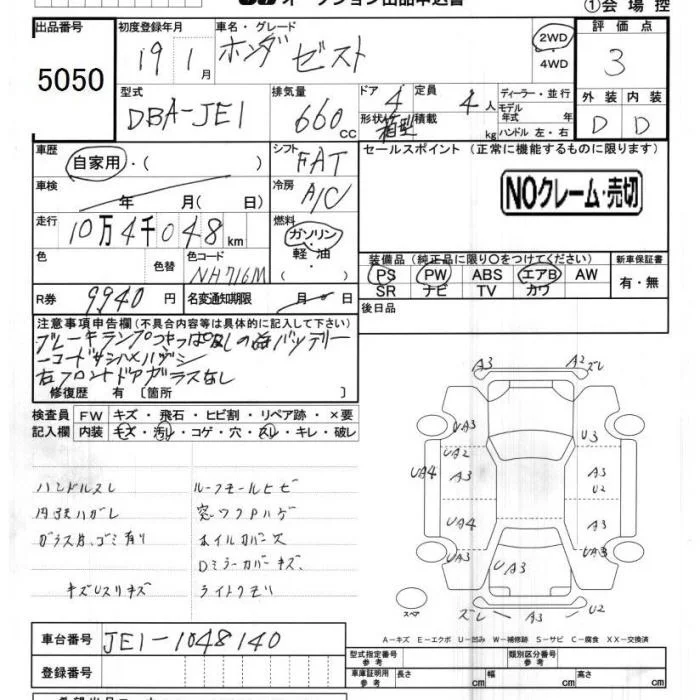 オークション出品申込書
①会場控
出品番号
5050
初度登録年月
19 1月
車名・グレード
ホンダ ゼスト
2WD
・
4WD
評価点
3
外装 内装
D D
型式
DBA-JE1
排気量
660cc
ドア
4
形状
箱型
定員
4人
積載
kg
ディーラー・並行
モデル年式 年
ハンドル 左・右
車歴
自家用・( )
シフト
FAT
セールスポイント (正常に機能するものに限ります)
NOクレーム・売切
車検
年 月( 日)
冷房
A/C
走行
10万4千048km
燃料
ガソリン・
軽油・
( )
色
色替
色コード
NH716M
装備品 (純正品に限り○をつけてください)
PS PW ABS エアB AW
SR ナビ TV カワ
新車保証書
有・無
R券
9940円
名変通知期限
月 日
後日品
注意事項申告欄 (不具合内容等は具体的に記入して下さい)
右フロントドアガラスなし
修復歴 有 [箇所 ]
検査員記入欄
FW キズ・飛石・ヒビ割・リペア跡・×要
内装 キズ・汚レ・コゲ・穴・スレ・キレ・破レ
ハンドルスレ
ルーフモールヒビ
内張ハガレ
窓ワクPハゲ
ガラス片、ゴミ有り
ホイルカバーキズ
Dミラーカバーキズ、
ライトクモリ
A3
A2 ズレ
UA3
U3
UA2
UA4
A3
A3
U2
UA4
A3
UA3
UA3
UA3
スペア
ズレ
A3
U2
A-キズ E-エクボ U-凹み W-補修跡 S-サビ C-腐食 XX-交換済
車台番号
JE1-1048140
登録番号
型式指定番号
参考
類別区分番号
参考
車庫証明用
参考
長さ cm
幅 cm
高さ cm